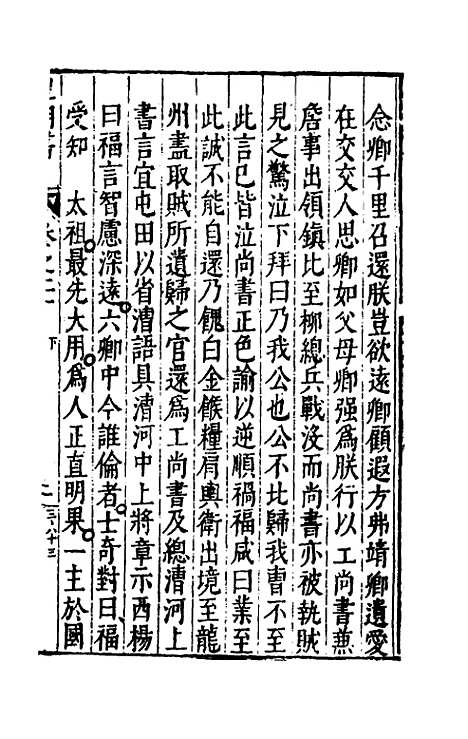 念卿千里召還朕豈欲遠卿顧遐方弗靖卿遺愛
在交交人思卿如父母卿强爲朕行以工尚書兼
詹事出領鎭比至柳總兵戰没而尚書亦被執賊
見之驚泣下拜曰乃我公也公不比歸我曹不至
此言已皆泣尚書正色諭以逆順禍福咸曰業至
此誠不能自還乃餽白金餱糧肩輿衛出境至龍
州盡取賊所遺歸之官還爲工尚書及總漕河上
書言宜屯田以省漕語具漕河中上將章示西楊
曰福言智慮深遠六卿中今誰倫者士奇對曰福
受知　太祖最先大用爲人正直明果一主於國